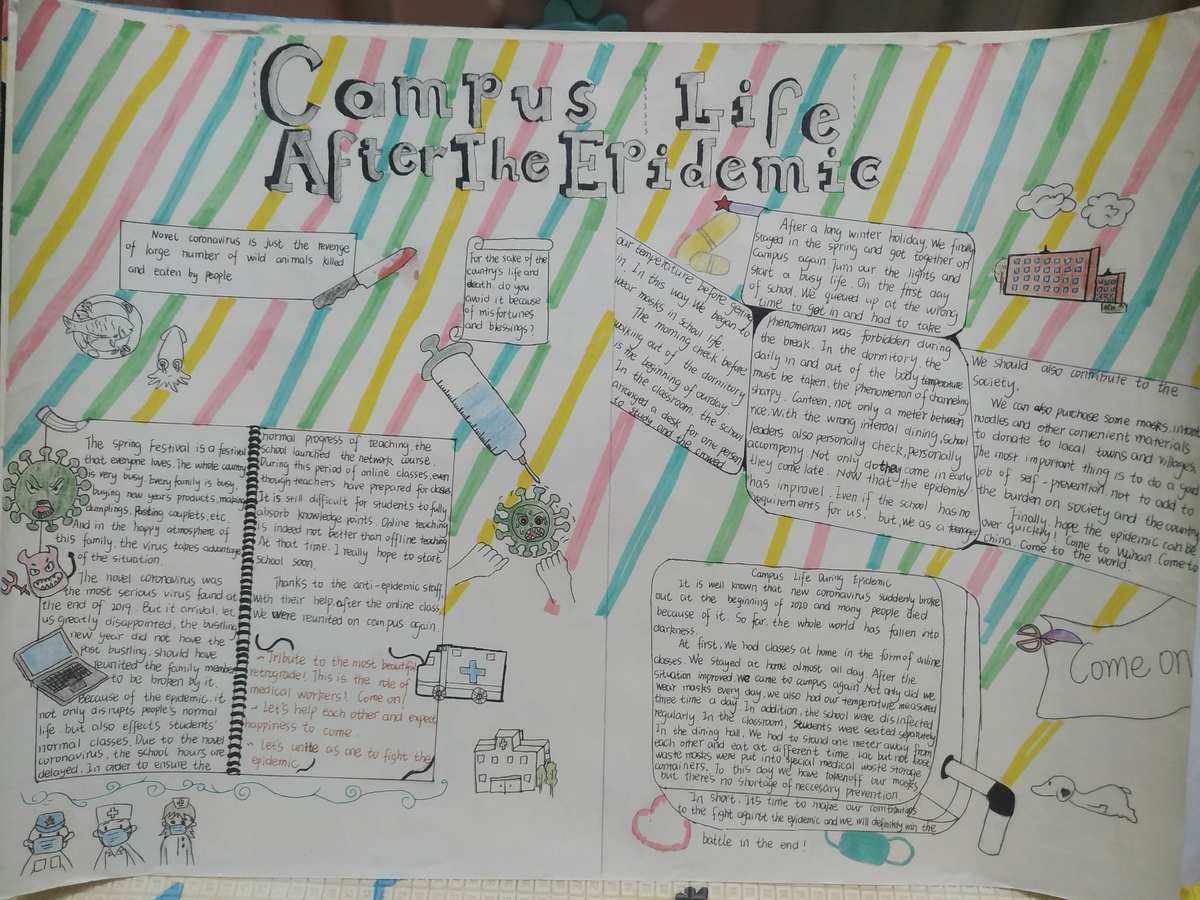 Campus Life
After The Epidemic
Novel coronavirus is just the revenge
of large number of wild animals killed
and eaten by people
For the sake of the
country's life and
death. do you
avoid it because
of misfortunes
and blessings?
The spring Festival is a festival
that everyone loves. The whole country
is very busy. Every family is busy.
buying new year's products, making
dumplings, Pasting couplets, etc.
And in the happy atmosphere of
this family, the virus takes advantage
of the situation.
The novel coronavirus was
the most serious virus found at
the end of 2019. But it arrival, let
us greatly disappointed, the bustling
new year did not have the
past bustling. should have
reunited the family member
to be broken by it.
Because of the epidemic, it
not only disrupts people's normal
life. but also effects students'
normal classes. Due to the novel
coronavirus, the school hours are
delayed. In order to ensure the
normal progress of teaching, the
school launched the network course.
During this period of online classes, even
though teachers have prepared for classes
It is still difficult for students to fully
absorb knowledge points. Online teaching
is indeed not better than offline teaching
At that time. I really hope to start
school soon.
Thanks to the anti-epidemic staff,
with their help, after the online class,
We were reunited on campus again
~ Tribute to the most beautiful
retrograde! This is the role of
medical workers! Come on!
~ Let's help each other and expect
happiness to come.
~ Let's unite as one to fight the
epidemic
After a long winter holiday, We finally
stayed in the spring and got together on
campus again. Turn our the lights and
start a busy life. On the first day
of school. We queued up at the wrong
time to get in and had to take
our temperature before getting
in. In this way We began to
wear masks in school life.
The morning check before
walking out of the dormitory
is the beginning of ourday.
In the classroom, the school
arranged a desk for one person
to study and the crowed
phenomenon was forbidden during
the break. In the dormitory, the
daily in and out of the body temperature
must be taken. the phenomenon of channeling
sharpy. Canteen, not only a meter between
rice. With the wrong interval dining, school
leaders also personally check, personally
accompony. Not only do they come in early
they come late. Now that the epidemic
has improvel. Even if the school has no
requirements for us. but. We as a teenager
We should also contribute to the
society.
We can also purchase some masks, instant
noodles and other convenient materials
to donate to local towns and villages.
The most important thing is to do a good
job of self-prevention. not to add to
the burden on society and the country
Finally. hope the epidemic can be
over quickly! Come to Wuhan. Come to
china. Come to the world.
Campus Life During Epidemic
It is well known that new coronavirus suddenly broke
out at the beginning of 2020 and many people died
because of it. So far, the whole world has fallen into
darkness.
At first. We had classes at home in the form of online
classes. We stayed at home almost all day. After the
situation improved, We came to campus again! Not only did we
wear masks every day, we also had our temperature measured
three time a day. In addition, the school were disinfected
regularly. In the classroom, students were seated separately
In the dining hall. We had to stand one meter away from
each other and eat at different time. Lab but not lose,
waste masks were put into special medical waste storage
containers. To this day we have takenoff our masks
but there's no shortage of neccesary prevention
In short. It's time to make our contributions
to the fight against the epidemic and we will definitely win the
battle in the end!
Come on